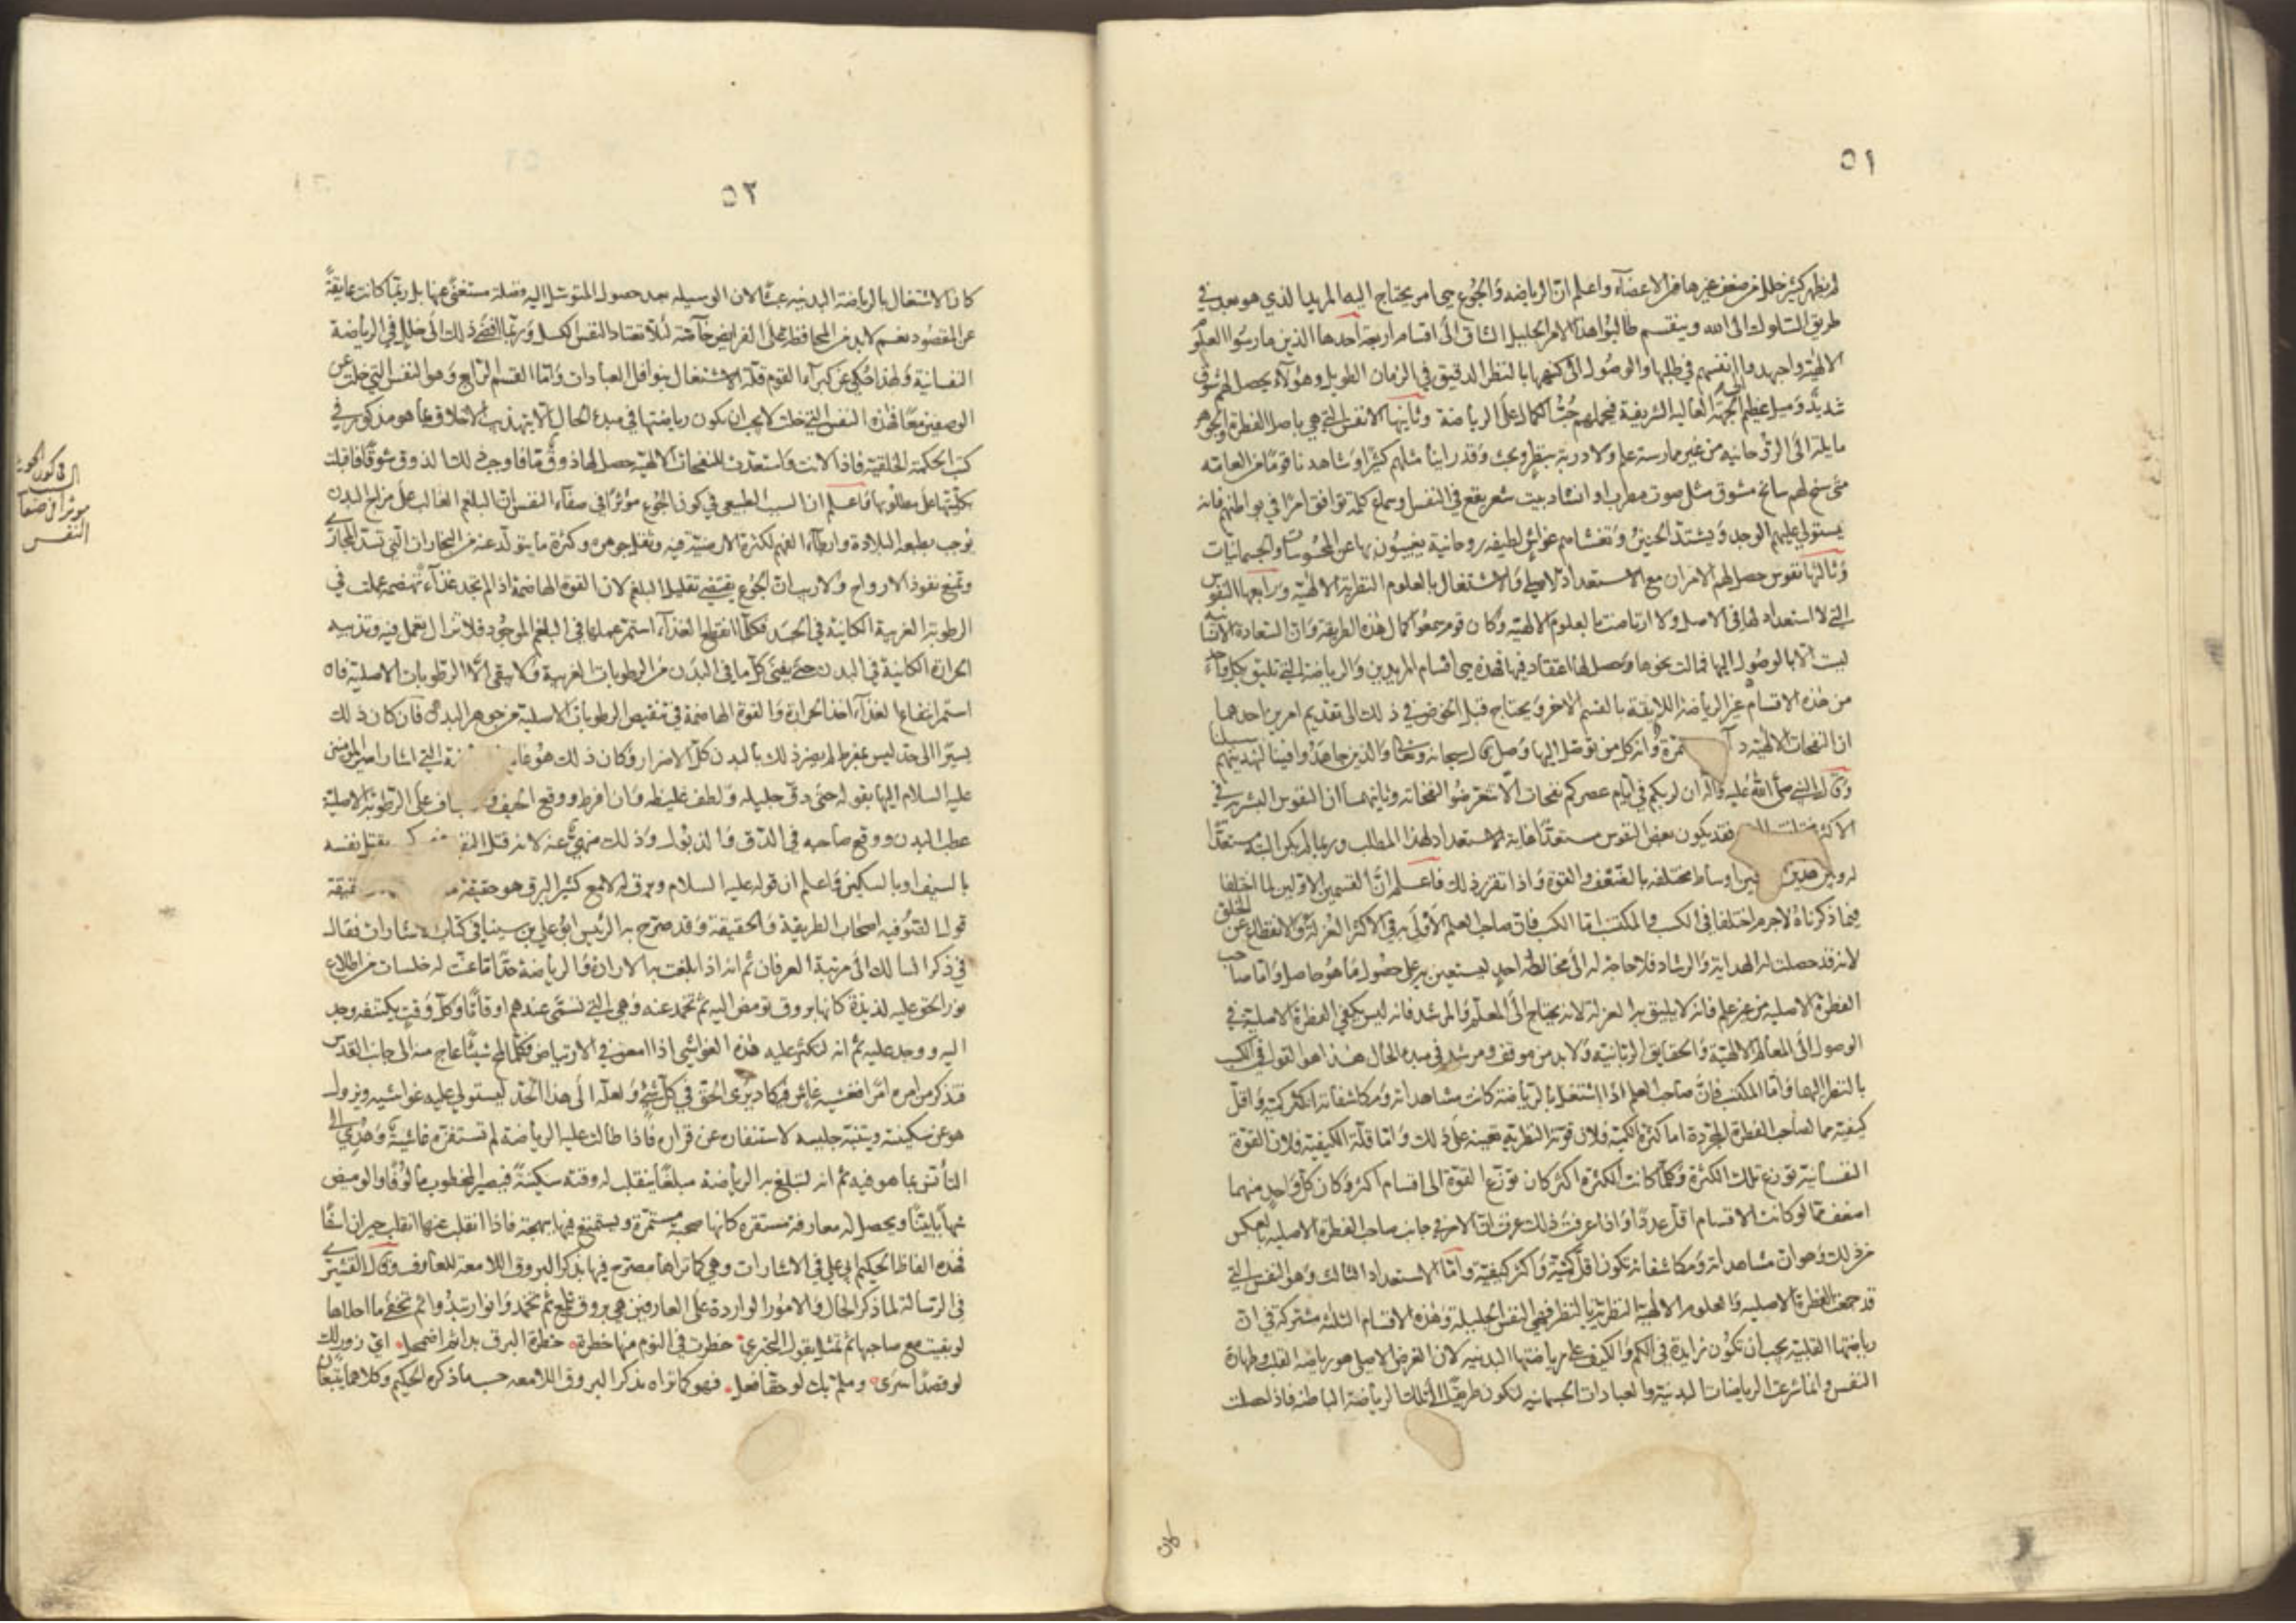 ٥١
لم يظهر كثير خلل من ضعف غيرها من الاعضآء واعلم ان الرياضه والجوع هي امر يحتاج اليه المريد الذي هو بعد في
طريق السلوك الى الله وينقسم طالبوا هذا الامر الجليل الشاق الى اقسام اربعة احدها الذين مارسوا العلوم
الالهية واجهدوا انفسهم في طلبها والوصول الى كنهها بالنظر الدقيق في الزمان الطويل وهؤلاء يحصل لهم شوق
شديد وميل عظيم الى الجهة العاليه الشريفة فيحملهم حب الكمال على الرياضة وثانيها الانفس التي هي باصل الفطرة والجوهر
مايلة الى الروحانيه من غير ممارسة علم ولا دربة بنظر وبحث وقد راينا مثلهم كثيرا وشاهدنا قوما من العامه
متى سنح لهم سانح مشوق مثل صوت مطرب او انشاد بيت شعر يقع في النفس او سماع كلمة توافق امرا في بواطنهم فانه
يستولي عليهم الوجد ويشتد الحنين وتغشاهم غواش لطيفه روحانية يغيبون بها عن المحسوسات والجسمانيات
وثالثها نفوس حصل لهم الامران مع الاستعداد الاصلي والاشتغال بالعلوم النظرية الالهية ورابعها النفوس
التي لا استعداد لها في الاصل ولا ارتاضت بالعلوم الالهيه وكان قوم سمعوا كمال هذه الطريقه وان السعادة الانسانية
ليست الا بالوصول اليها فمالت نحوها وحصل لها اعتقاد فيها فهذه هي اقسام المريدين والرياضة التي تليق بكل واحد
من هذه الاقسام غير الرياضة اللايقة بالقسم الاخر ويحتاج قبل الخوض في ذلك الى تقديم امرين احدهما
ان النفحات الالهية د مرة وانه كل من توصل اليها وصل قال سبحانه وتعالى والذين جاهدوا فينا لنهدينهم سبلنا
وقال النبي صلى الله عليه وآله ان لربكم في ايام عصركم نفحات الا فتعرضوا لنفحاته وثانيهما ان النفوس البشرية في
الاكثر مختلفة فقد يكون بعض النفوس مستعدا غاية الاستعداد لهذا المطلب وربما لم يكن البتة مستعدا
له وبين هذين اوساط مختلفه بالضعف والقوة واذا تقرر ذلك فاعلم ان القسمين الاولين لما اختلفا
فيما ذكرناه لاجرم اختلفا في الكسب والمكتسب اما الكسب فان صاحب العلم الاولى به في الاكثر العزلة والانقطاع عن الخلق
لانه قد حصلت له الهداية والرشاد فلا حاجة له الى مخالطة احد ليستعين به على حصول ما هو حاصل واما صاحب
الفطرة الاصليه من غير علم فانه لا يليق به العزلة لانه يحتاج الى المعلم والمرشد فانه ليس يكفي الفطرة الاصلية في
الوصول الى المعالم الالهية والحقايق الربانية ولا بد من موقف ومرشد في مبدء الحال هذا هو القول في الكسب
بالنظر اليهما واما المكتسب فان صاحب العلم اذا اشتغل بالرياضة كانت مشاهداته ومكاشفاته اكثر كمية واقل
كيفية مما لصاحب الفطرة المجردة اما كثرة الكمية فلان قوته النظرية تعينه على ذلك واما قلة الكيفية فلان القوة
النفسانية توزع تلك الكثرة وكلما كانت الكثرة اكثر كان توزع القوة الى اقسام اكثر وكان كل واحد منهما
اضعف مما لو كانت الاقسام اقل عددا واذا عرفت ذلك عرفت ان الامر في جانب صاحب الفطرة الاصلية بالعكس
من ذلك وهو ان مشاهداته ومكاشفاته تكون اقل كمية واكثر كيفية واما الاستعداد الثالث وهو النفس التي
قد جمعت الفطرة الاصلية والعلوم الالهية النظرية بالنظر فهي النفس الجليلة وهذه الاقسام الثلثة مشتركة في ان
رياضتها القلبية يجب ان تكون زايدة في الكم والكيف على رياضتها البدنيه لان الغرض الاصلي هو رياضة القلب وطهارة
النفس وانما شرعت الرياضات البدنية والعبادات الجسمانيه لتكون طريقا الى تلك الرياضة الباطنة فاذا حصلت
كان
٥٢
كان الاشتغال بالرياضة البدنيه عبثا لان الوسيله بعد حصول المتوسل اليه فضلة مستغنى عنها بل ربما كانت عايقة
عن المقصود نعم لا بد من المحافظة على الفرايض خاصة لئلا تعتاد النفس الكسل وربما افضى ذلك الى خلل في الرياضة
النفسانية ولهذا حكي عن كبرآء القوم قلة الاشتغال بنوافل العبادات واما القسم الرابع وهو النفس التي خلت عن
الوصفين معا فهذه النفس التي خلت لا يجب ان يكون رياضتها في مبدء الحال الا بتهذيب الاخلاق بما هو مذكور في
كتب الحكمة الخلقية فاذا لانت واستعدت للنفحات الالهية حصل لها ذوق ما فاوجب ذلك الذوق شوقا فاقبلت
بكليتها على مطلوبها فاعلم ان السبب الطبيعي في كون الجوع مؤثرا في صفآء النفس ان البلغم الغالب على مزاج البدن
يوجب بطبعه البلادة وابطآء الفهم لكثرة الارضية فيه وثقل جوهره وكثرة ما يتولد عنه من البخارات التي تسد المجاري
وتمنع نفوذ الارواح ولا ريب ان الجوع يقتضي تقليل البلغم لان القوة الهاضمة اذا لم تجد غذآء تهضمه عملت في
الرطوبة الغريبة الكائنة في الجسد فكلما انقطع الغذآء استمر عملها في البلغم الموجود فلا تزال تعمل فيه وتذيبه
الحرارة الكائنة في البدن حتى يفنى كل ما في البدن من الرطوبات الغريبة ولا يبقى الا الرطوبات الاصلية فان
استمر انقطاع الغذآء اخذ الحرارة والقوة الهاضمة في تنقيص الرطوبات الاصلية من جوهر البدن فان كان ذلك
يسيرا الى حد ليس بمفرط لم يضر ذلك بالبدن كل الاضرار وكان ذلك هو غاية التي اشار امير المؤمنين
عليه السلام اليها بقوله حتى دق جليله ولطف غليظه وان افرط ووقع الحيف و على الرطوبة الاصلية
عطب البدن ووقع صاحبه في الدق والذبول وذلك منهي عنه لانه قتل النفس يقتل نفسه
بالسيف او بالسكين واعلم ان قوله عليه السلام وبرق له لامع كثير البرق هو حقيقة
قول الصوفيه اصحاب الطريقة والحقيقة وقد صرح به الرئيس ابو علي بن سينا في كتاب الاشارات فقال
في ذكر السالك الى مرتبة العرفان ثم انه اذا بلغت به الارادة والرياضة حدا ما عنت له خلسات من اطلاع
نور الحق عليه لذيذة كانها بروق تومض اليه ثم تخمد عنه وهي التي تسمى عندهم اوقاتا وكل وقت يكتنفه وجد
اليه ووجد عليه ثم انه لتكثر عليه هذه الغواشي اذا امعن في الارتياض فكلما لمح شيئا عاج منه الى جانب القدس
فتذكر من امره امرا فغشيه غاش فيكاد يرى الحق في كل شئ ولعله الى هذا الحد ليستولي عليه غواشيه ويزول
هو عن سكينته ويتنبه جليسه لاستنفاره عن قراره فاذا طالت عليه الرياضة لم تستفزه غاشية وهدي الى
التأنس بما هو فيه ثم انه لتبلغ به الرياضة مبلغا ينقلب له وقته سكينة فيصير المخطوب مالوفا والوميض
شهابا بينا ويحصل له معارفة مستقره كانها صحبة مستمرة ويستمتع فيها ببهجته فاذا انقلب عنها انقلب حيران اسفا
فهذه الفاظ الحكيم ابي علي في الاشارات وهي كما تراها مصرح فيها بذكر البروق اللامعة للعارف وقال القشيري
في الرسالة لما ذكر الحال والامور الواردة على العارفين هي بروق تلمع ثم تخمد وانوار تبدو ثم تخفى ما احلاها
لو بقيت مع صاحبها ثم تمثل بقول البحتري خطرت في النوم منها خطرة خطرة البرق بدا ثم اضمحل اي زور لك
لو قصدا سرى وملم بك لو حقا فعل فهو كما تراه يذكر البروق اللامعه حسب ما ذكره الحكيم وكلاهما يتبعان
في كون الجوع
موثرا في صفآ
النفس